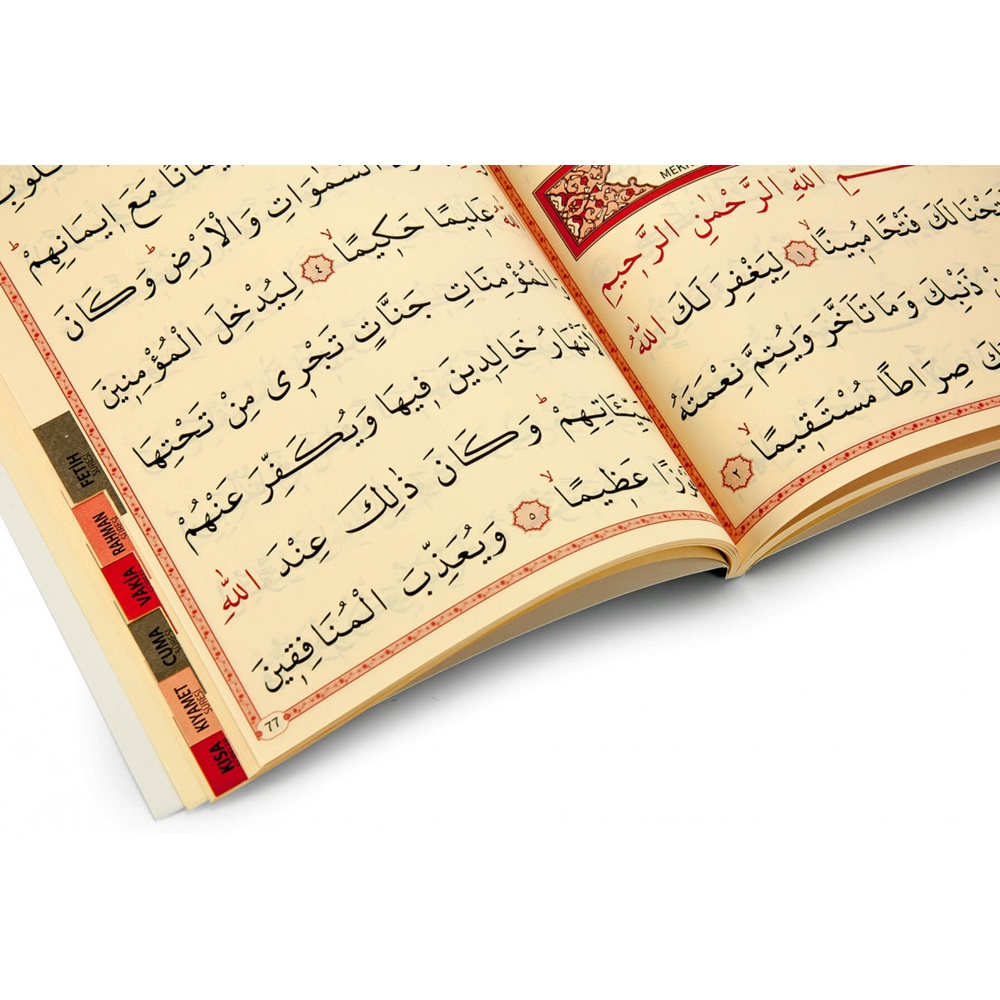 MEK
ـمِ اللّٰهِ الرَّحْمٰنِ الرَّحِيمِ
ـتَحْنَا لَكَ فَتْحًا مُبِينًاۙ ﴿١﴾ لِيَغْفِرَ لَكَ اللّٰهُ
مِنْ ذَنْبِكَ وَمَا تَاَخَّرَ وَيُتِمَّ نِعْمَتَهُ
ـكَ صِرَاطًا مُسْتَقِيمًاۙ ﴿٢﴾
ـلُوبِ
ـيمَانًا مَعَ اِيمَانِهِمْۜ
السَّمٰوَاتِ وَالْاَرْضِۜ وَكَانَ
اللّٰهُ عَلِيمًا حَكِيمًاۙ ﴿٤﴾ لِيُدْخِلَ الْمُؤْمِنِينَ
وَالْمُؤْمِنَاتِ جَنَّاتٍ تَجْرِى مِنْ تَحْتِهَا
الْاَنْهَارُ خَالِدِينَ فِيهَا وَيُكَفِّرَ عَنْهُمْ
سَيِّـَٔاتِهِمْۜ وَكَانَ ذٰلِكَ عِنْدَ اللّٰهِ
ـوْزًا عَظِيمًاۙ ﴿٥﴾ وَيُعَذِّبَ الْمُنَافِقِينَ
77
FETİH SURESİ
RAHMAN SURESİ
VAKİA
CUMA SURESİ
KIYAMET SURESİ
KISA